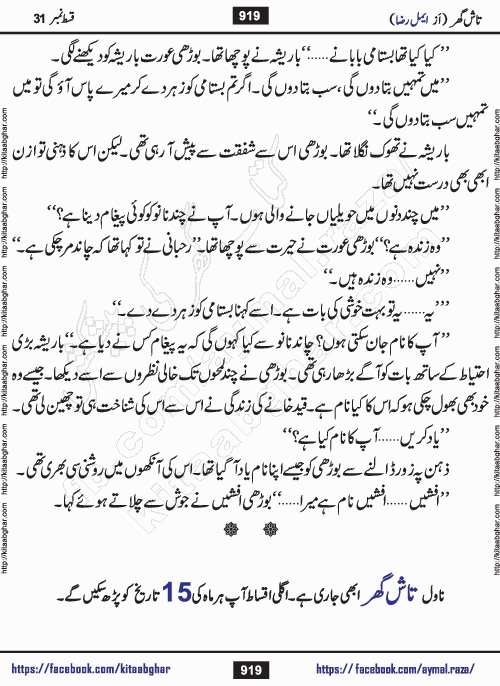 تاش گھر (از ایمل رضا) 919 قسط نمبر 31
’’کیا کیا تھا بسطامی بابا نے......‘‘ باریشہ نے پوچھا تھا۔ بوڑھی عورت باریشہ کو دیکھنے لگی۔
’’میں تمہیں بتا دوں گی، سب بتا دوں گی۔ اگر تم بسطامی کو زہر دے کر میرے پاس آؤ گی تو میں
تمہیں سب بتا دوں گی۔‘‘
باریشہ نے تھوک نگلا تھا۔ بوڑھی اس سے شفقت سے پیش آ رہی تھی۔ لیکن اس کا ذہنی توازن
ابھی بھی درست نہیں تھا۔
’’میں چند دنوں میں حویلیاں جانے والی ہوں۔ آپ نے چندا نانو کو کوئی پیغام دینا ہے؟‘‘
’’وہ زندہ ہے؟‘‘ بوڑھی عورت نے حیرت سے پوچھا تھا۔ ’’رحبانی نے تو کہا تھا کہ چاند مر چکی ہے۔‘‘
’’نہیں......وہ زندہ ہیں۔‘‘
’’یہ......یہ تو بہت خوشی کی بات ہے۔ اسے کہنا بسطامی کو زہر دے دے۔‘‘
’’آپ کا نام جان سکتی ہوں؟ چاندنا نو سے کیا کہوں گی کہ یہ پیغام کس نے دیا ہے۔‘‘ باریشہ بڑی
احتیاط کے ساتھ بات کو آگے بڑھا رہی تھی۔ بوڑھی نے چند لمحوں تک خالی نظروں سے اسے دیکھا۔ جیسے وہ
خود بھی بھول چکی ہو کہ اس کا کیا نام ہے۔ قید خانے کی زندگی نے اس سے اس کی شناخت ہی تو چھین لی تھی۔
’’یاد کریں......آپ کا نام کیا ہے؟‘‘
ذہن پہ زور ڈالنے سے بوڑھی کو جیسے اپنا نام یاد آ گیا تھا۔ اس کی آنکھوں میں روشنی سی بھری تھی۔
’’افشیں......افشیں نام ہے میرا......‘‘ بوڑھی افشیں نے جوش سے چلاتے ہوئے کہا۔
ناول تاش گھر ابھی جاری ہے۔ اگلی اقساط آپ ہر ماہ کی 15 تاریخ کو پڑھ سکیں گے۔
http://kitaabghar.com http://kitaabghar.com http://kitaabghar.com http://kitaabghar.com http://kitaabghar.com
http://kitaabghar.com http://kitaabghar.com http://kitaabghar.com http://kitaabghar.com http://kitaabghar.com
https://facebook.com/kitaabghar 919 https://facebook.com/aymal.raza/